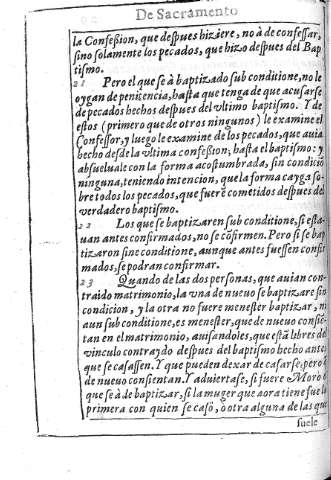 De Sacramento
la Confeßion, que despues biziere, no à de confessar,
sino solamente los pecados, que hizo despues del Bap
tismo.
21 Pero el que se à baptizado sub conditione, no le
oygan de penitencia, hasta que tenga de que acusarse
de pecados hechos despues del vltimo baptismo. Y de
estos (primero que de otros ningunos) le examine el
Confessor, y luego le examine de los pecados, que auia
hecho desde la vltima confeßion, hasta el baptismo: y
absueluale con la forma acostumbrada, sin condició
ninguna, teniendo intencion, que la forma cayga so-
bre todos los pecados, que fuerē cometidos despues del
verdadero baptismo.
22 Los que se baptizaren sub conditione, si esta-
uan antes confirmados, no se cōfirmen. Pero si se bap
tizaron sine conditione, aunque antes fuessen confir
mados, se podran confirmar.
23 Quando de las dos personas, que auian con-
traido matrimonio, la vna de nueuo se baptizare sin
condicion, y la otra no fuere menester baptizar,
aun sub conditione, es menester, que de nueuo consiē-
tan en el matrimonio, auisandoles, que estā libres del
vinculo contraydo despues del baptismo hecho antes
que se casassen. Y que pueden dexar de casarse, pero
de nueuo consientan. Y aduiertase, si fuere Moro
que se à de baptizar, si la muger que aora tiene fue la
primera con quien se casò, o otra alguna de las que
suele